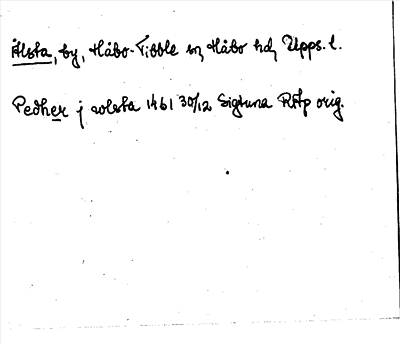 Ålsta, by, Håbo-Tibble sn, Håbo hd, Upps. l.
Pedher j aolsta 1461 30/12 Sigtuna RAp orig.